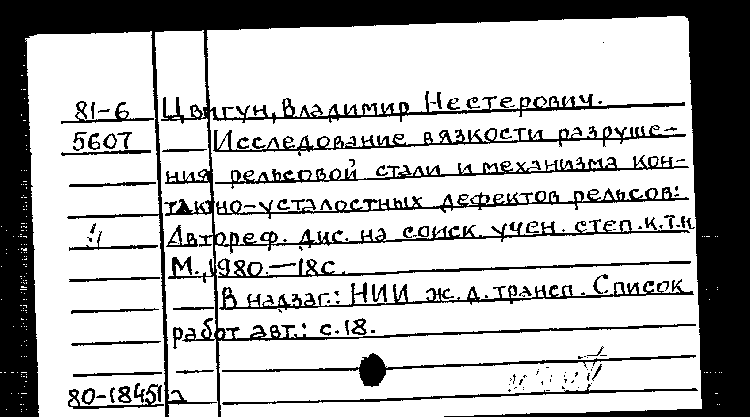 81-6 Цвигун, Владимир Нестерович.
5607 Исследование вязкости разруше-
ния рельсовой стали и механизма кон-
тактно-усталостных дефектов рельсов:
Автореф. дис. на соиск. учен. степ. к.т.н
М., 1980.—18с.
В надзаг.: НИИ ж.д. трансп. Список
работ авт.: с.18.
80-18451а